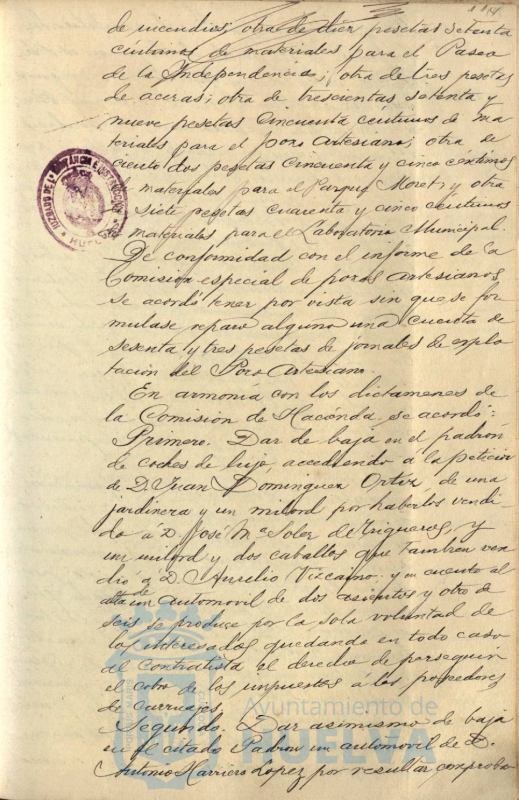 114
de incendios; otra de diez pesetas setenta
centimos de materiales para el Paseo
de la Independencia; otra de tres pesetas
de aceras; otra de trescientas setenta y
nueve pesetas cincuenta centimos de ma
teriales para el pozo Artesiano; otra de
ciento dos pesetas cincuenta y cinco centimos
materiales para el Parque Moret, y otra
siete pesetas cuarenta y cinco centimos
materiales para el Laboratorio Municipal.
De conformidad con el informe de la
Comision especial de pozos artesianos
se acordó tener por vista sin que se for
mulase reparo alguno una cuenta de
sesenta y tres pesetas de jornales de explo
tación del Pozo Artesiano.
En armonía con los dictamenes de
la Comision de Hacienda se acordó:
Primero. Dar de baja en el padrón
de coches de lujo, accediendo a la peticion
de D. Juan Dominguez Ortiz, de una
jardinera y un milord por haberlos vendi
do á D. José Mª Soler de Trigueros, y
un milord y dos caballos que tambien ven
dio a D. Aurelio Vizcaino. y en cuanto al
alta de un automovil de dos asientos y otro de
seis se produzca por la sola voluntad de
los interesados quedando en todo caso
al Contratista el derecho de perseguir
el cobro de los impuestos á los poseedores
de carruajes.
Segundo. Dar asimismo de baja
en el citado Padron un automovil de D.
Antonio Marriero Lopez por resultar comproba
JUZGADO DE 1ª INSTANCIA E INSTRUCCION
HUELVA
Ayuntamiento de
HUELVA